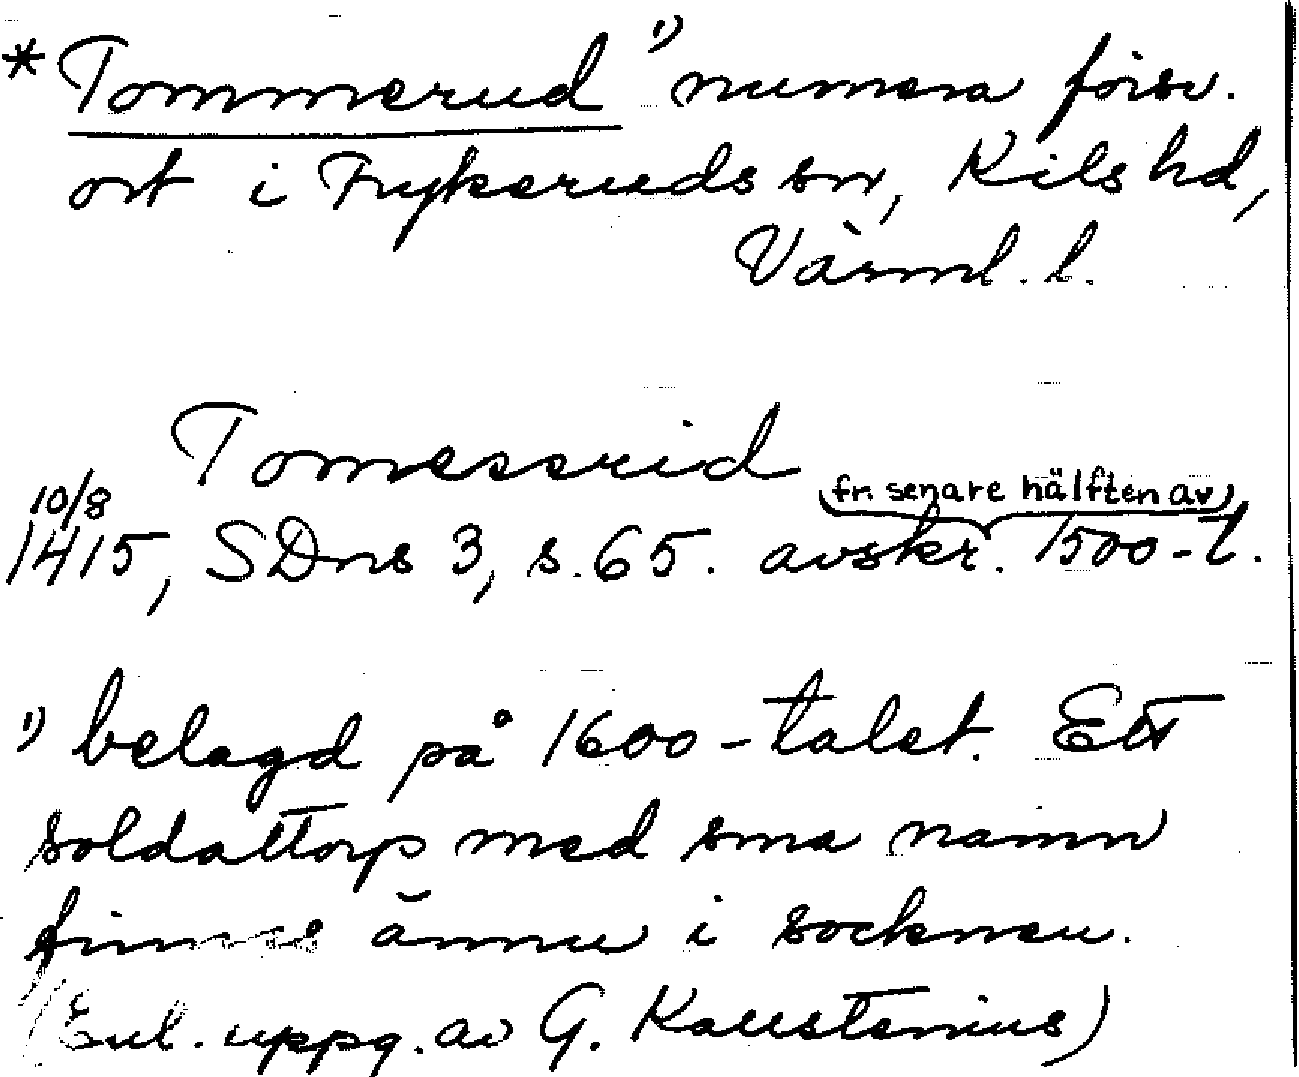 * Tommerud 1) numera försv.
ort i Frykeruds sn, Kils hd,
Värml. l.
Tomessrid
(fr. senare hälften av)
10/8
1415, SDns 3, s. 65. avskr. 1500-t.
1) belagd på 1600-talet. Ett
soldattorp med sma namn
finnes ännu i socknen.
(Enl. uppg. av G. Kallstenius)